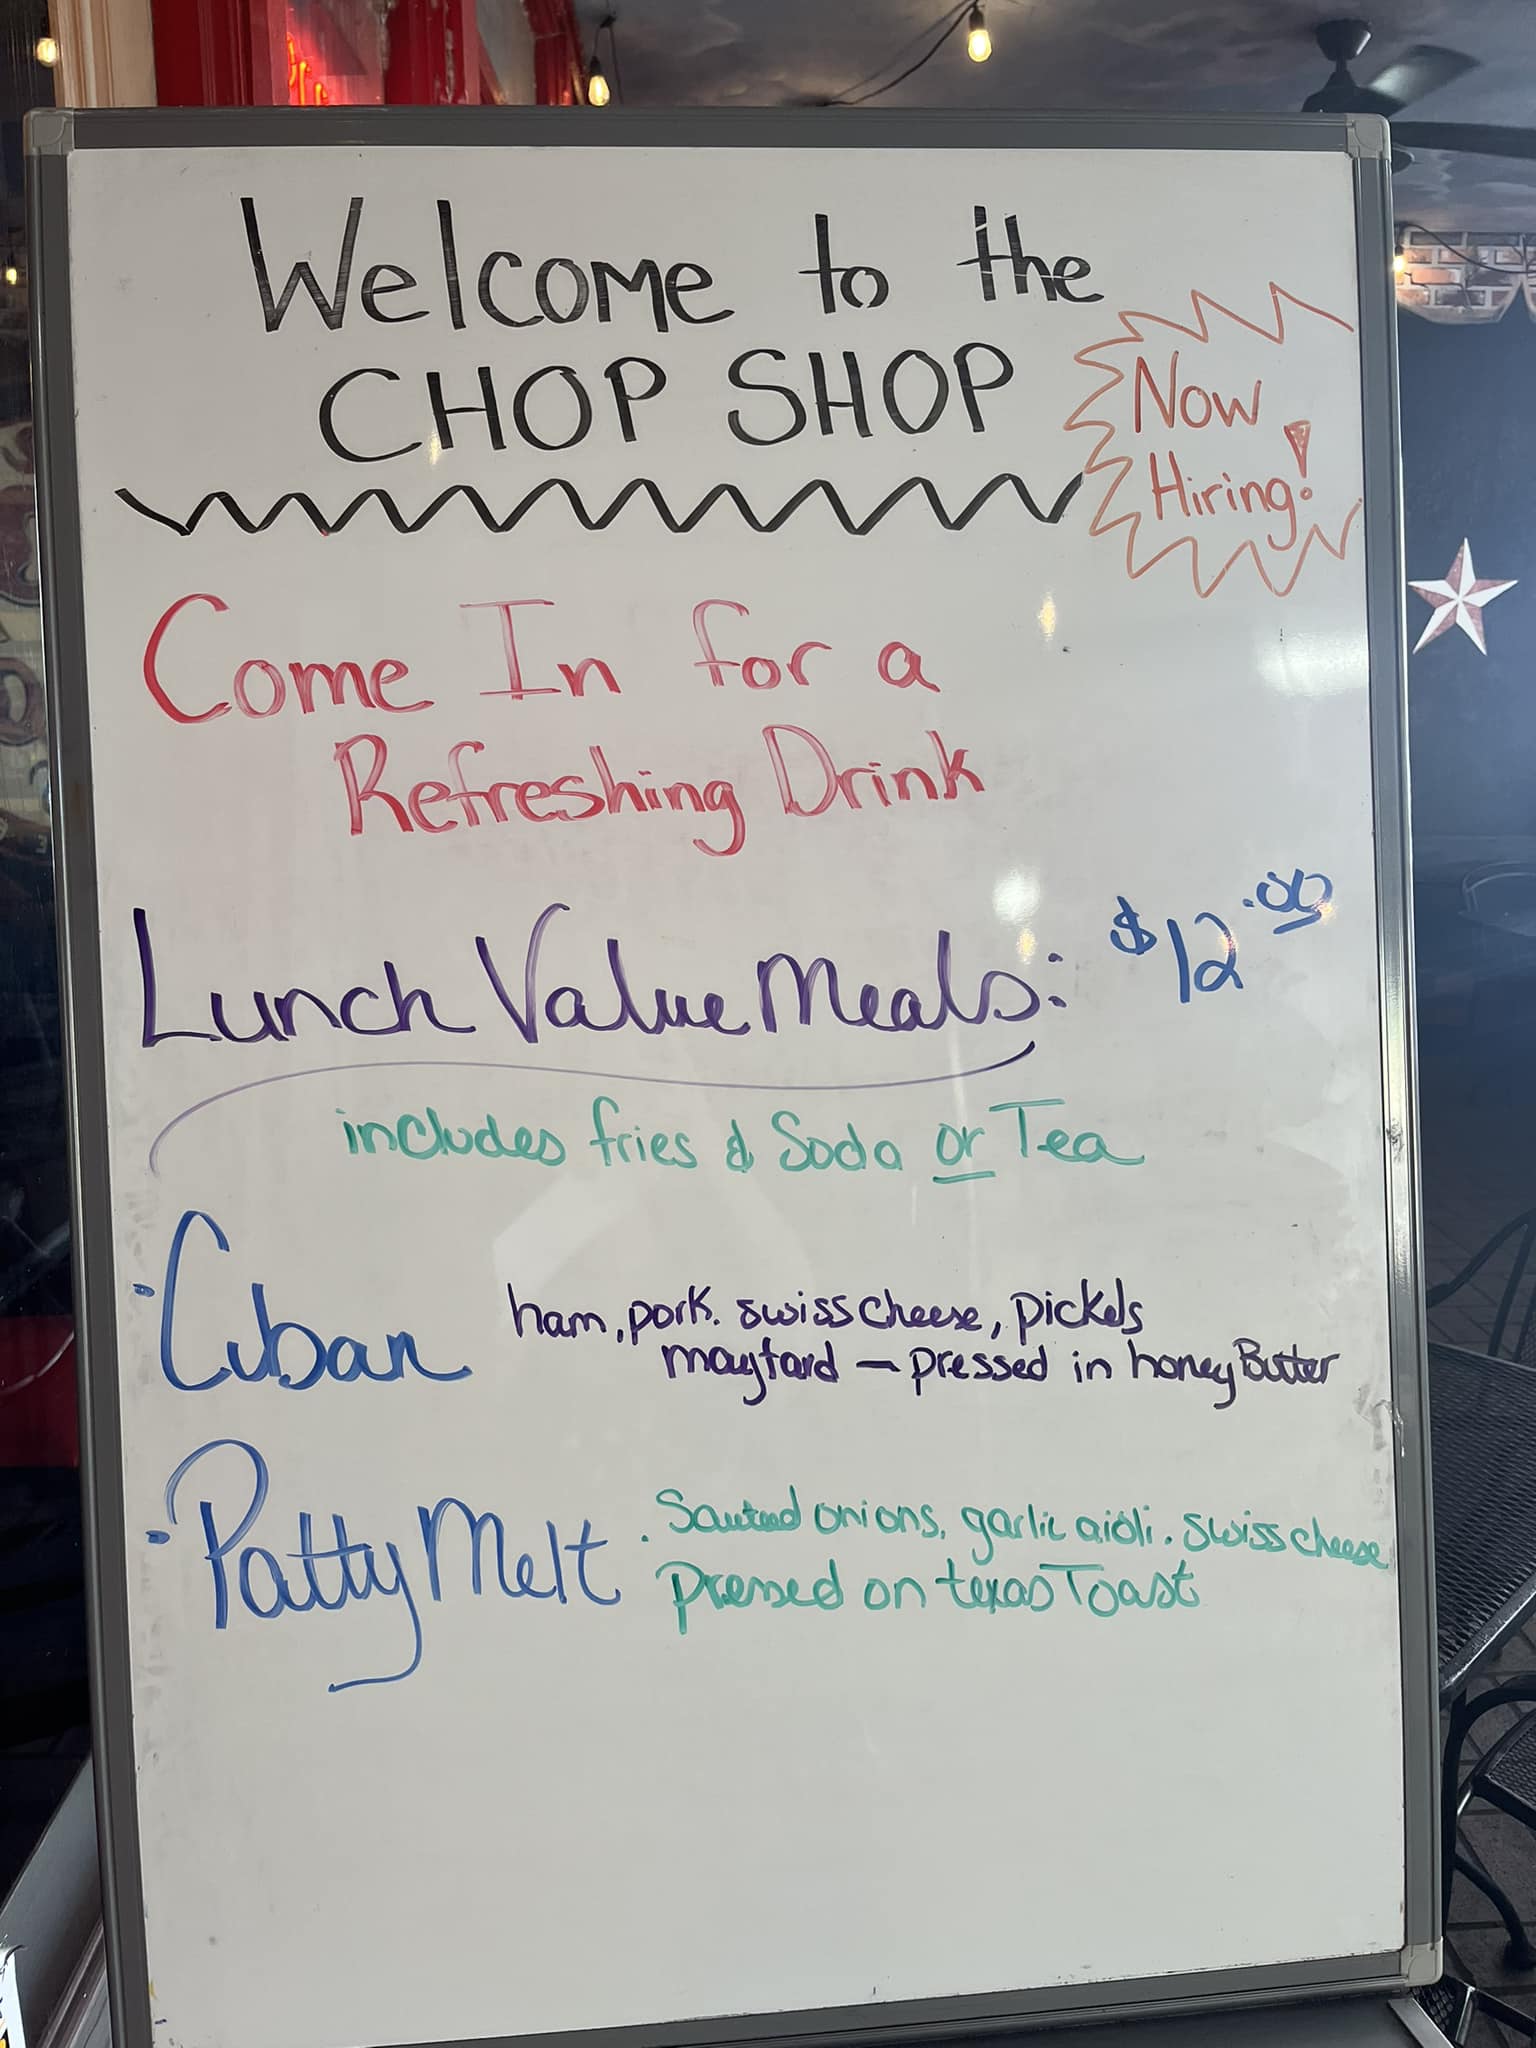 Welcome to the
CHOP SHOP
Now
Hiring!
Come In for a
Refreshing Drink
Lunch Value Meals: $12.00
includes fries & Soda or Tea
• Cuban ham, pork. swiss cheese, pickels
maytard — pressed in honey Butter
• Patty Melt . Sauteed onions, garlic aioli. swiss cheese
pressed on texas Toast